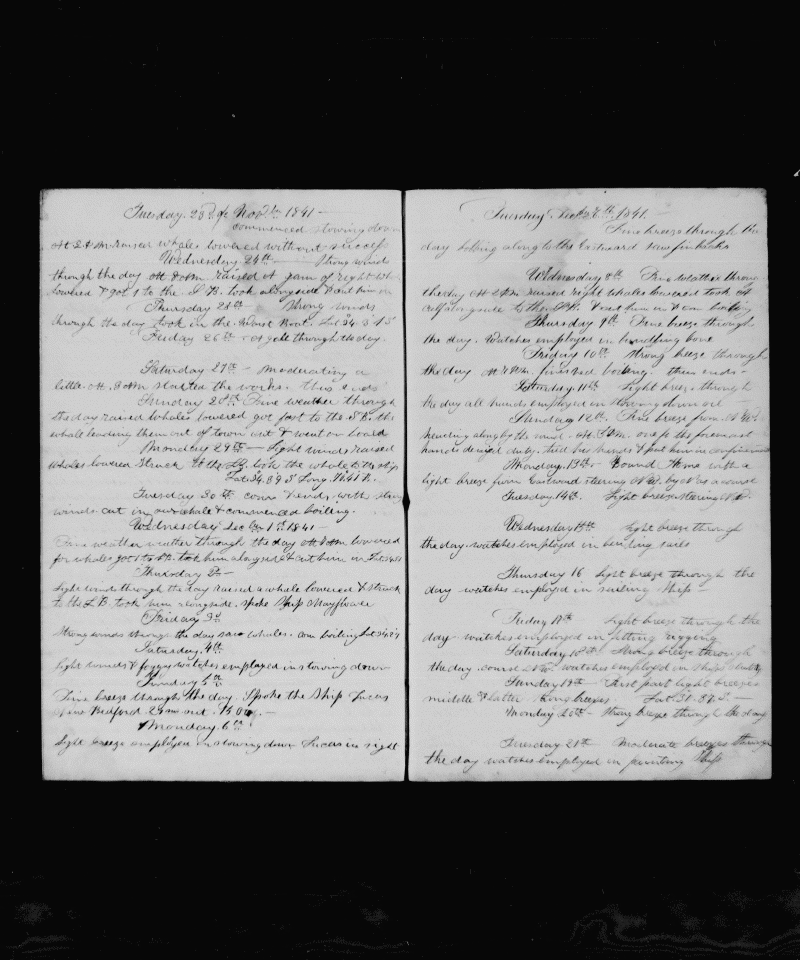 Tuesday. 23d of Novbr 1841 —
commenced stowing down
At 2 PM raised whales lowered without success
Wednesday 24th — Strong winds
through the day At 8 AM raised a gam of right
lowered & got 1 to the S. B. took alongside & cut him in
Thursday 25th — Strong winds
through the day took in the Waist Boat. Lat 34..3
Friday 26th — A gale through the day.
Saturday 27th — Moderating a
little At 8 AM started the works. this ends
Sunday 28th Fine weather through
the day raised whales lowered got fast to the S. B. the
whale leading them out of town cut & went on board
Monday 29th — Light winds raised
whales lowered Struck to the LB. took the whale to the ship
Lat. 34.39 S Long.
Tuesday 30th comes & ends with strong
winds. cut in our whale & commenced boiling.
Wednesday Decbr 1st 1841 —
Fine weather through the day At AM lowered
for whales got 1 to took him alongside & cut him in Lat
Thursday 2d —
light winds through the day raised a whale lowered & struck
to the L B. took him alongside. Spoke Ship Mayflower
Friday 3d
Strong winds through the day saw whales. boiling Lat
Saturday. 4th
light winds & foggy watches employed in stowing down
Sunday 5th
Fine breeze through the day. Spoke the Ship Lucas
New Bedford —
Monday. 6th
light breeze employed in stowing down Lucas in sight
Tuesday Dec 7th. 1841. —
Fine breeze through the
day along to the Eastward saw finbacks
Wednesday 8th Fine weather through
the day At 2 PM raised right whales lowered took a
calf alongside to the & cut him in & boiling
Thursday 9th Fine breeze through
the day. Watches employed in bundling bone
Friday 10th Strong breeze through
the day At PM. finished boiling. thus ends —
Saturday 11th Light breeze through
the day all hands employed in stowing down oil —
Sunday 12th. Fine breeze from
heading along by the wind. At PM. one of the foremast
hands denied duty. tied his hands & put him in confinement
Monday. 13th — Bound Home with a
light breeze from Eastward steering by a course
Tuesday 14th. Light breeze steering
Wednesday 15th light breeze through
the day. watches employed in bending sails
Thursday 16 light breeze through the
day watches employed in Ship —
Friday 17th light breeze through the
day watches employed in fitting rigging
Saturday 18th Strong breeze through
the day. course watches employed in Ships duty
Sunday 19th — First part light breezes
middle & latter strong breezes Lat. 31..37 S —
Monday 20th — Strong breeze through the day
Tuesday 21st Moderate breezes through
the day watches employed in painting Ship